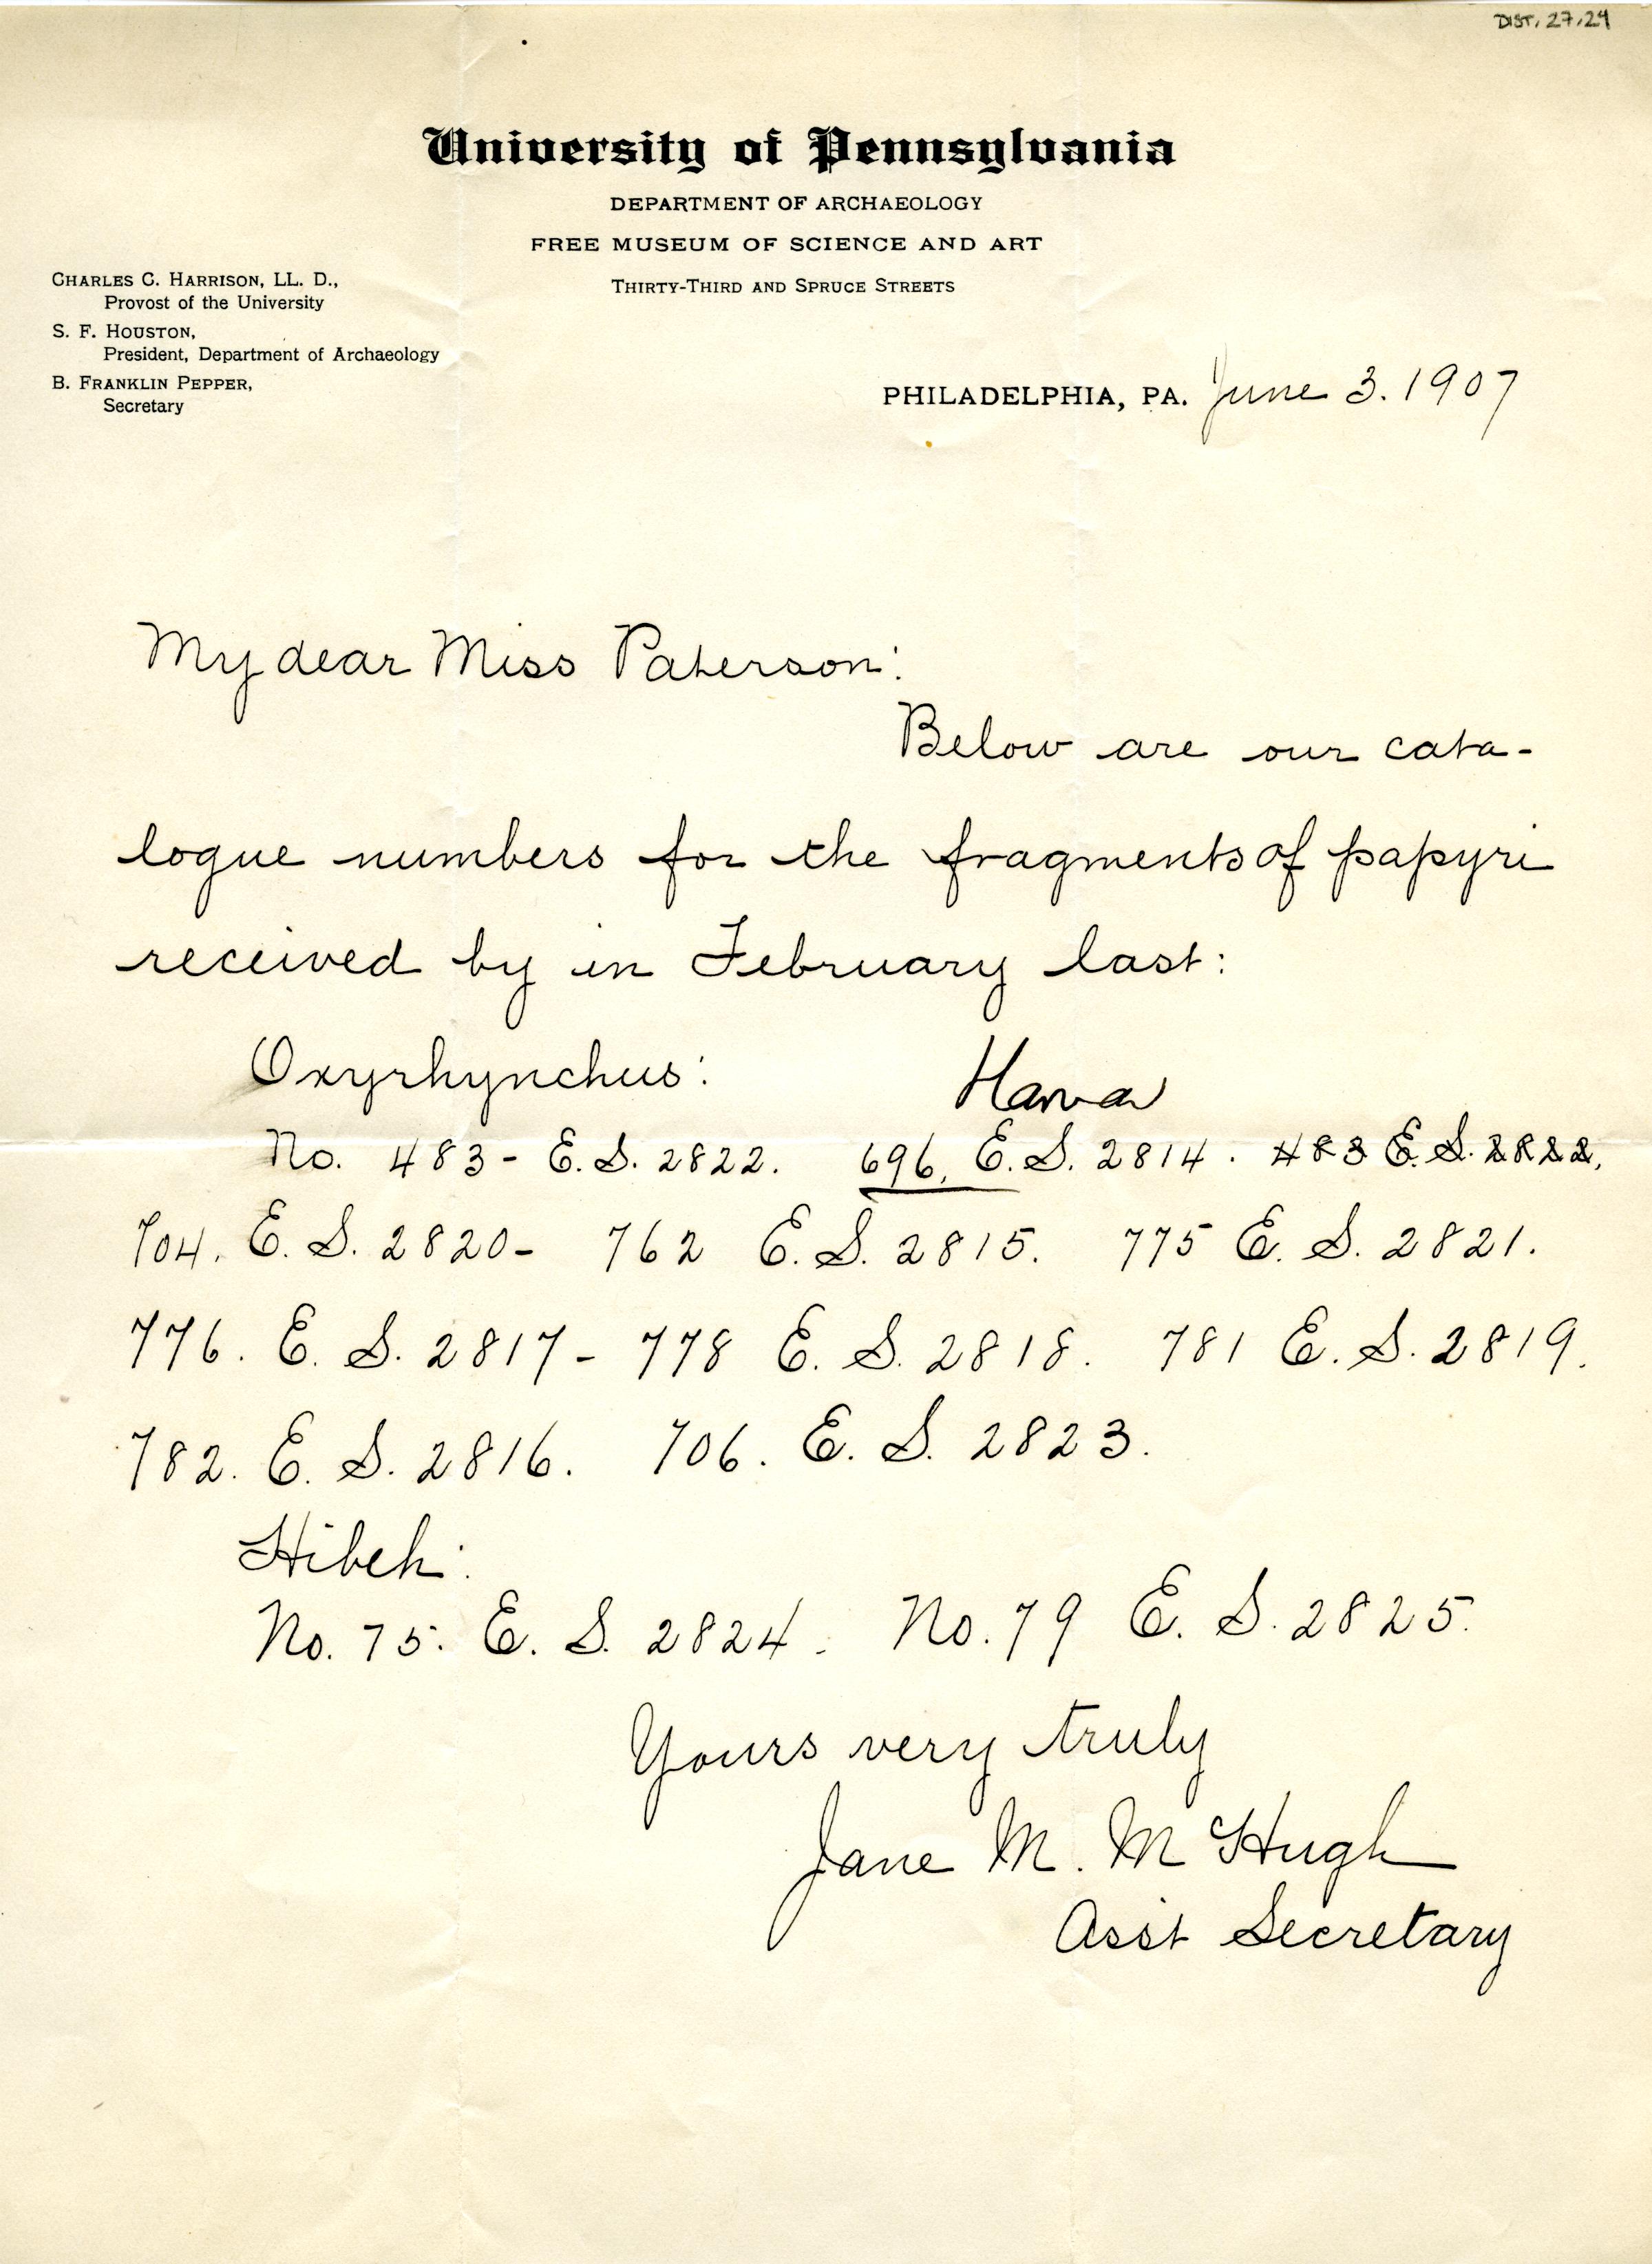 DIST. 27.24
University of Pennsylvania
DEPARTMENT OF ARCHAEOLOGY
FREE MUSEUM OF SCIENCE AND ART
THIRTY-THIRD AND SPRUCE STREETS
CHARLES C. HARRISON, LL. D.,
Provost of the University
S. F. HOUSTON,
President, Department of Archaeology
B. FRANKLIN PEPPER,
Secretary
PHILADELPHIA, PA. June 3. 1907
My dear Miss Paterson:
Below are our cata-
logue numbers for the fragments of papyri
received by in February last:
Oxyrhynchus:
No. 483 - E.S. 2822. 696. E.S. 2814. 483 E.S. 2822.
704. E.S. 2820 - 762 E.S. 2815. 775 E.S. 2821.
776. E.S. 2817 - 778 E.S. 2818. 781 E.S. 2819.
782. E.S. 2816. 706. E.S. 2823.
Hibeh:
No. 75. E.S. 2824. No. 79 E.S. 2825.
Yours very truly
Jane M. McHugh
Asst Secretary